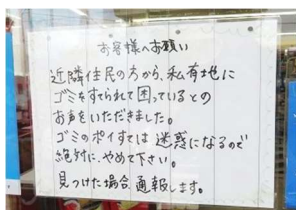 お客様へお願い
近隣住民の方から、私有地に
ゴミをすてられて困っているとの
お声をいただきました。
ゴミのポイすては迷惑になるので
絶対に、やめて下さい。
見つけた場合、通報します。